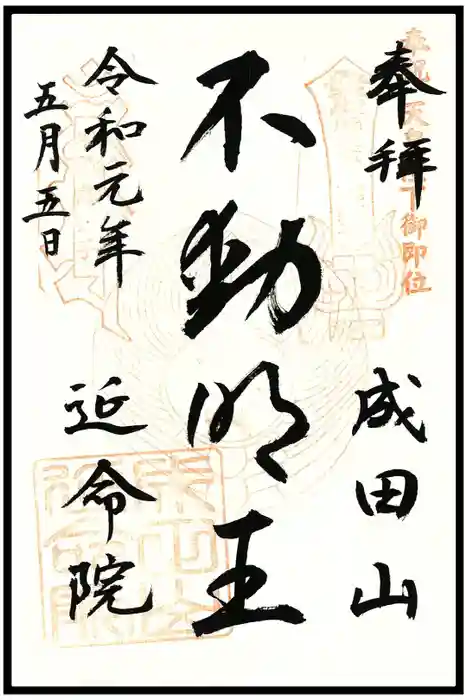 奉祝天皇陛下御即位
奉拝
成田山
不動明王
令和元年
五月五日
延命院